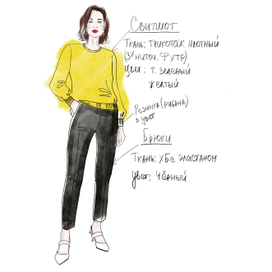 Свитшот
Ткань: трикотаж плотный
(3х ниток, футер)
Цвет: т. зелёный
жёлтый
Резинка (рибана)
в цвет
Брюки
Ткань: ХБ с эластаном
Цвет: чёрный